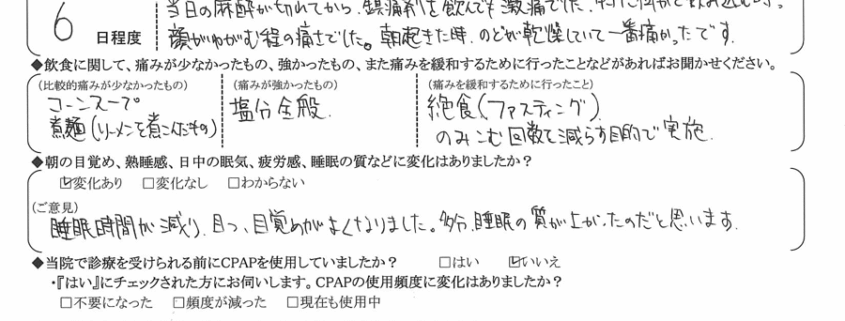 当日の麻酔が切れてから、鎮痛剤を飲んでも激痛でした。特に何かを飲み込む時、
6 日程度 顔がゆがむ程の痛さでした。朝起きた時、のどが乾燥していて一番痛かったです.
◆飲食に関して、痛みが少なかったもの、強かったもの、また痛みを緩和するために行ったことなどがあればお聞かせください。
(比較的痛みが少なかったもの) (痛みが強かったもの) (痛みを緩和するために行ったこと)
コーンスープ 塩分全般. 絶食(ファスティング)
煮麺(ソーメンを煮こんだもの) のみこむ回数を減らす目的で実施.
◆朝の目覚め、熟睡感、日中の眠気、疲労感、睡眠の質などに変化はありましたか?
☑変化あり □変化なし □わからない
(ご意見)
睡眠時間が減り、且つ、目覚めがよくなりました。多分、睡眠の質が上がったのだと思います.
◆当院で診療を受けられる前にCPAPを使用していましたか? □はい ☑いいえ
・『はい』にチェックされた方にお伺いします。CPAPの使用頻度に変化はありましたか?
□不要になった □頻度が減った □現在も使用中